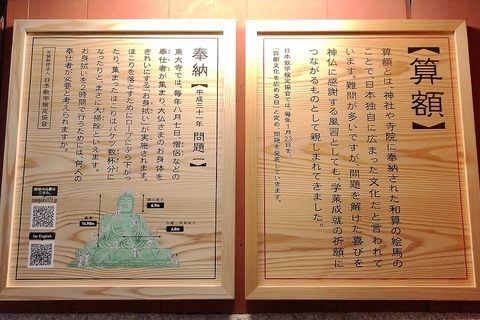 【算額】
算額とは神社や寺院に奉納された和算の絵馬の
ことで、日本独自に広まった文化だと言われて
います。難問が多いですが、問題を解けた喜びを
神仏に感謝する風習としても、学業成就の祈願に
つながるものとして親しまれてきました。
日本数学検定協会では、毎年1月23日を、
「算額文化を広める日」と定め、問題を発表していきます。
奉納【平成三十一年 問題一】
東大寺では、毎年八月七日、僧侶などの
奉仕者が集まり、大仏さまのお身体を
きれいにする「お身拭い」が実施されます。
ほこりを落とすためにロープにぶら下がっ
たり、集まったほこりはバケツ数杯分に
なったりと、まさに大掃除といえます。
お身拭いを2時間で行うためには、何人の
奉仕者が必要と考えられますか。
公益財団法人 日本数学検定協会
自分の応募は
こちら
sangaku123.jp
for English
座高
14.98m
6.7m
6.8m